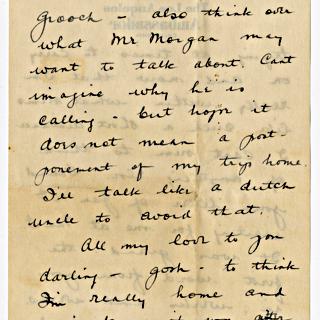 grooch - also think over
what Mr Morgan may
want to talk about. Cant
imagine why he is
calling - but hope it
does not mean a post-
ponement of my trip home.
I'll talk like a dutch
uncle to avoid that.
All my love to you
darling - gosh - to think
I'm really home and